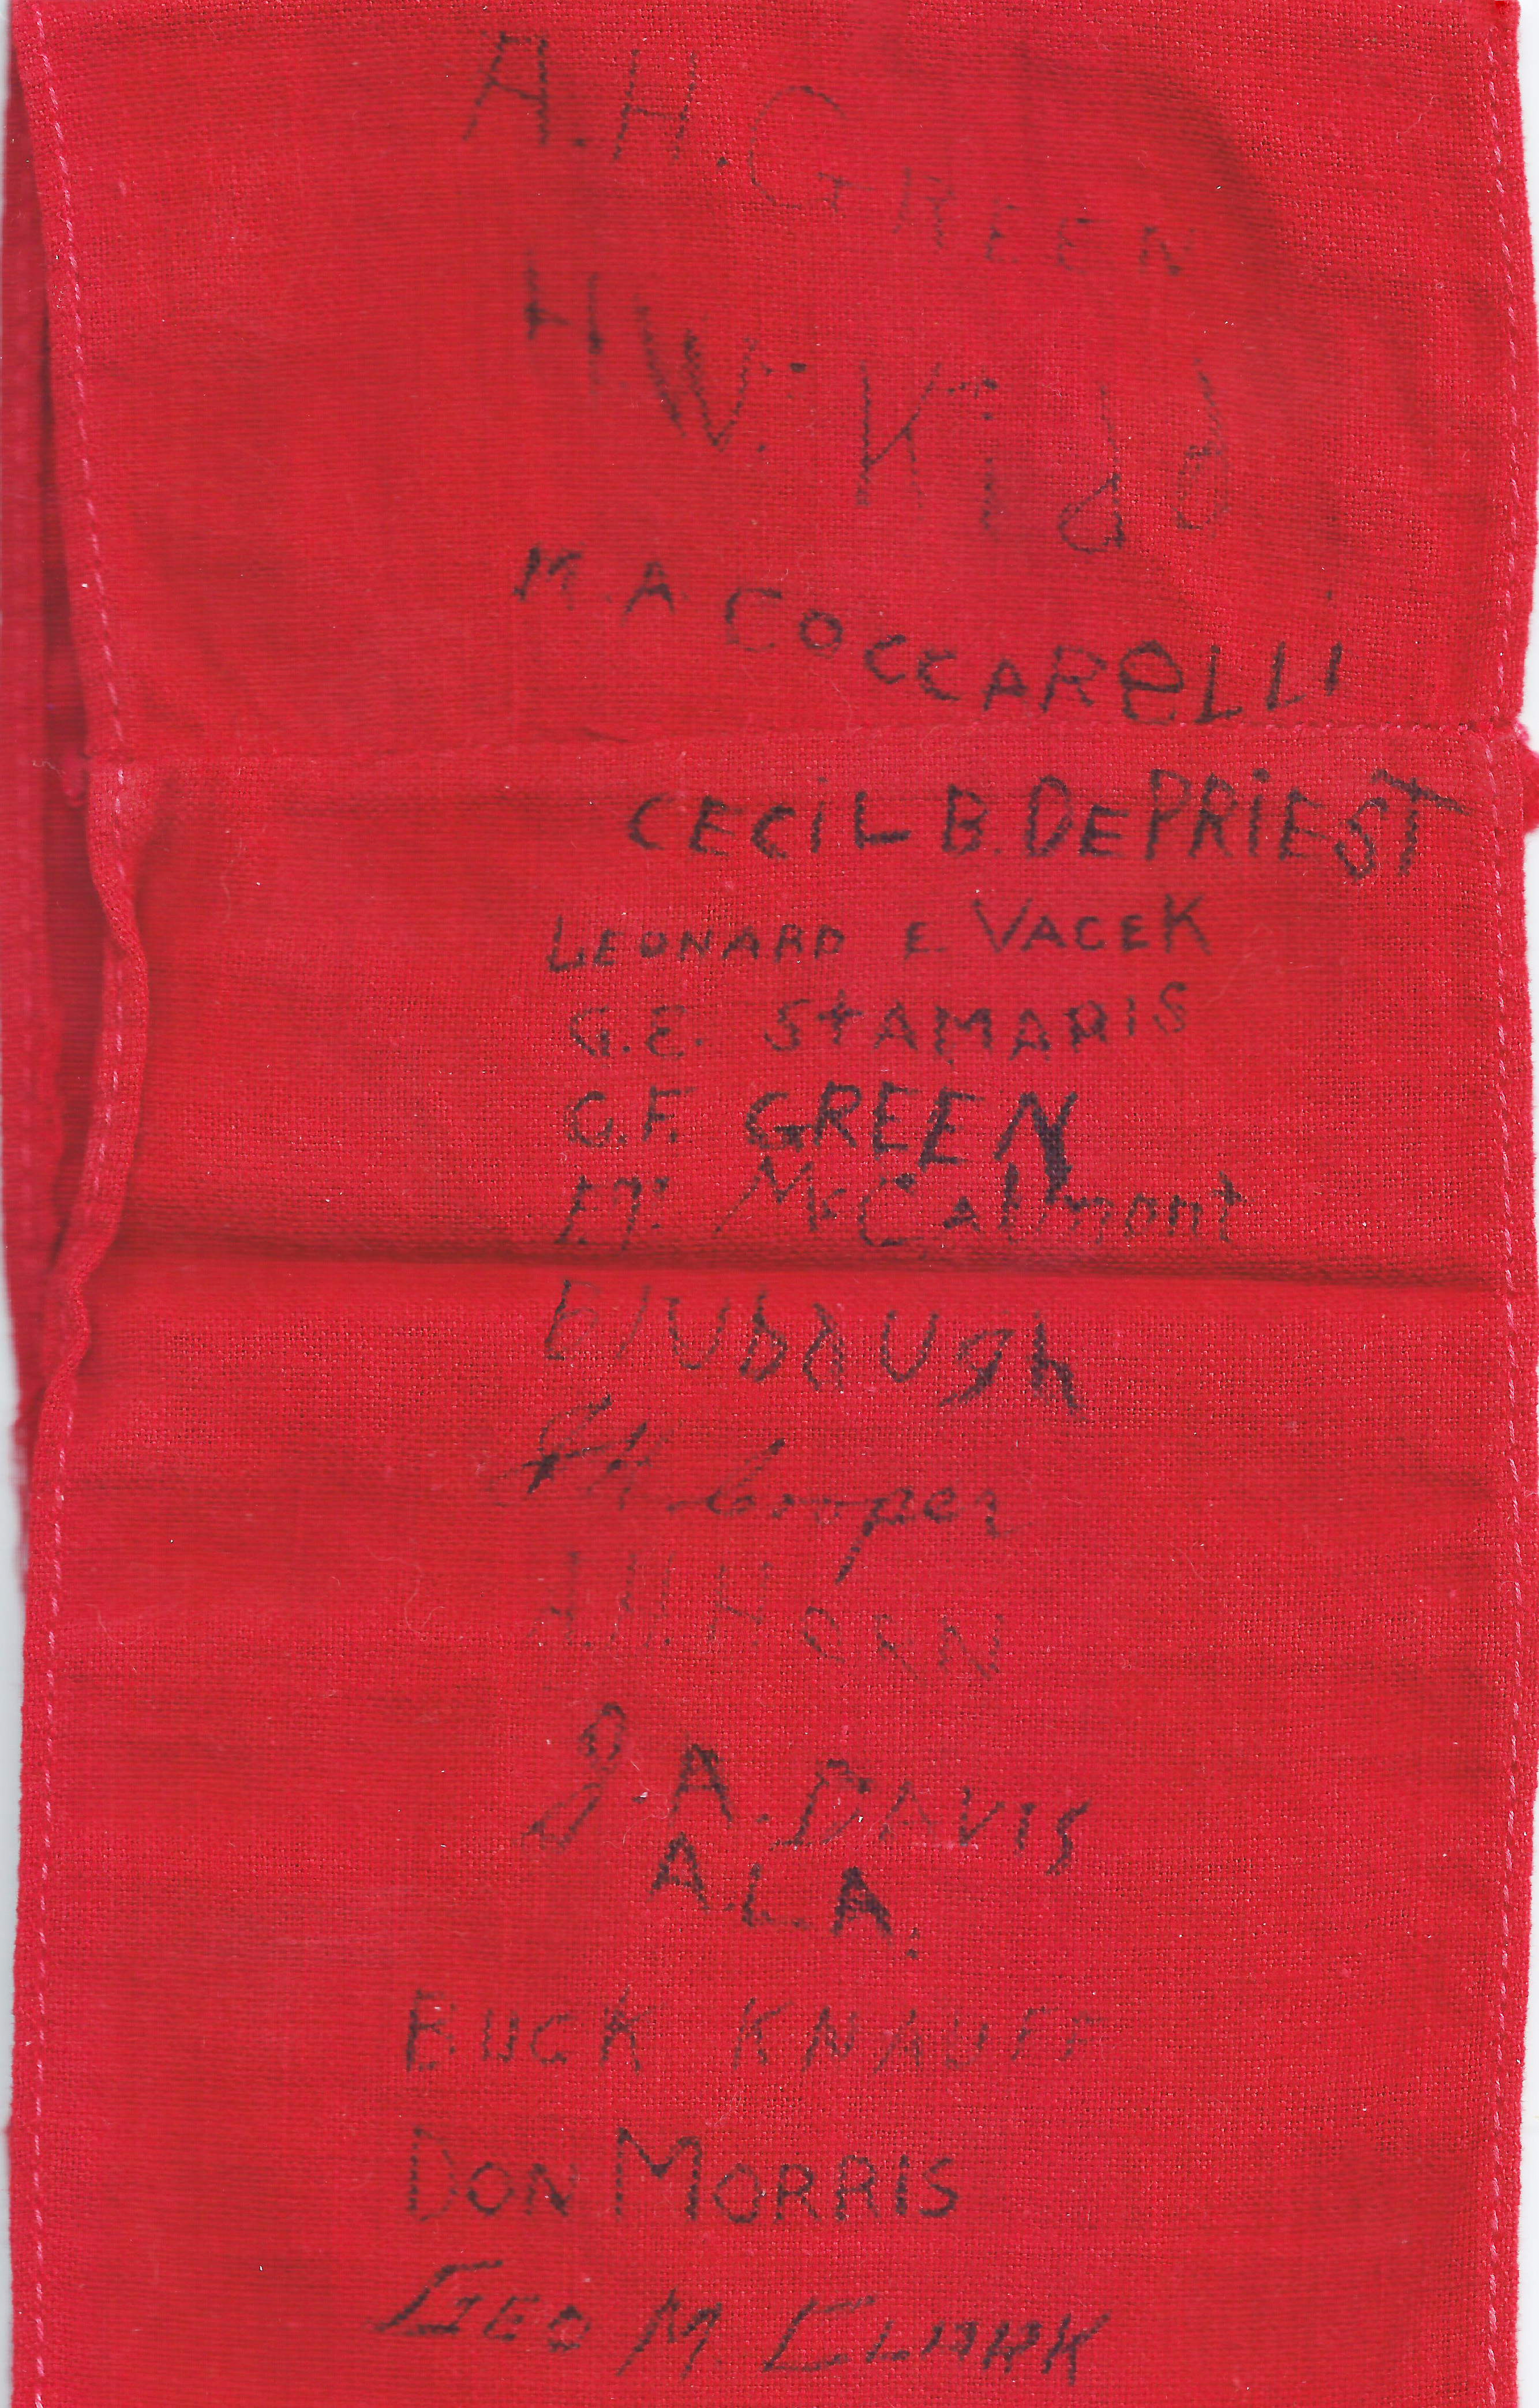 A.H. GREEN
H.W. Kidd
M.A. COCCARELLI
CECIL B. DEPRIEST
LEONARD E VACEK
G.E. StAMARIS
G.F. GREEN
McCalmont
Blubaugh
Cooper
HORN
J.A. DAVIS
ALA.
BUCK KNAUFF
DON MORRIS
GEO M. CLARK